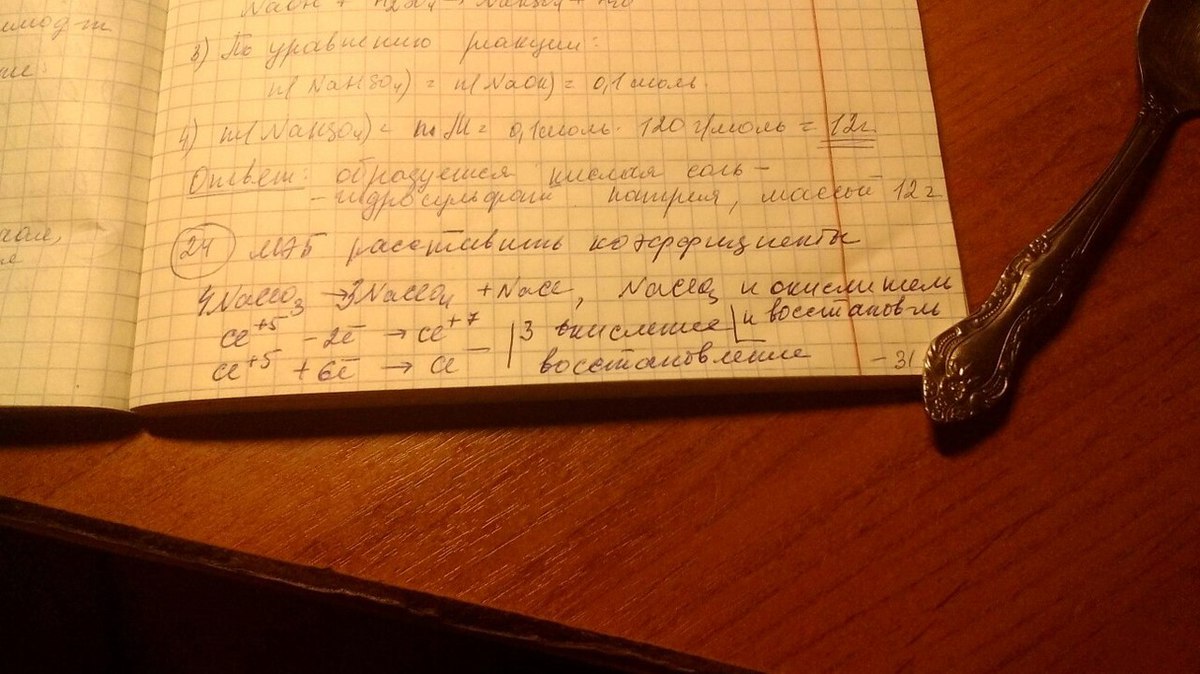 NaOH + H2SO4 → NaHSO4 + H2O
3) По уравнению реакции:
n(NaHSO4) = n(NaOH) = 0,1 моль.
4) m(NaHSO4) = n·M = 0,1 моль · 120 г/моль = 12 г.
Ответ: образуется кислая соль –
– гидросульфат натрия, массой 12 г.
24 МЭБ расставить коэффициенты
4NaClO3 → 3NaClO4 + NaCl, NaClO3 и окислитель
и восстановль
Cl+5 – 2e → Cl+7 | 3 окисление
Cl+5 + 6e → Cl– восстановление